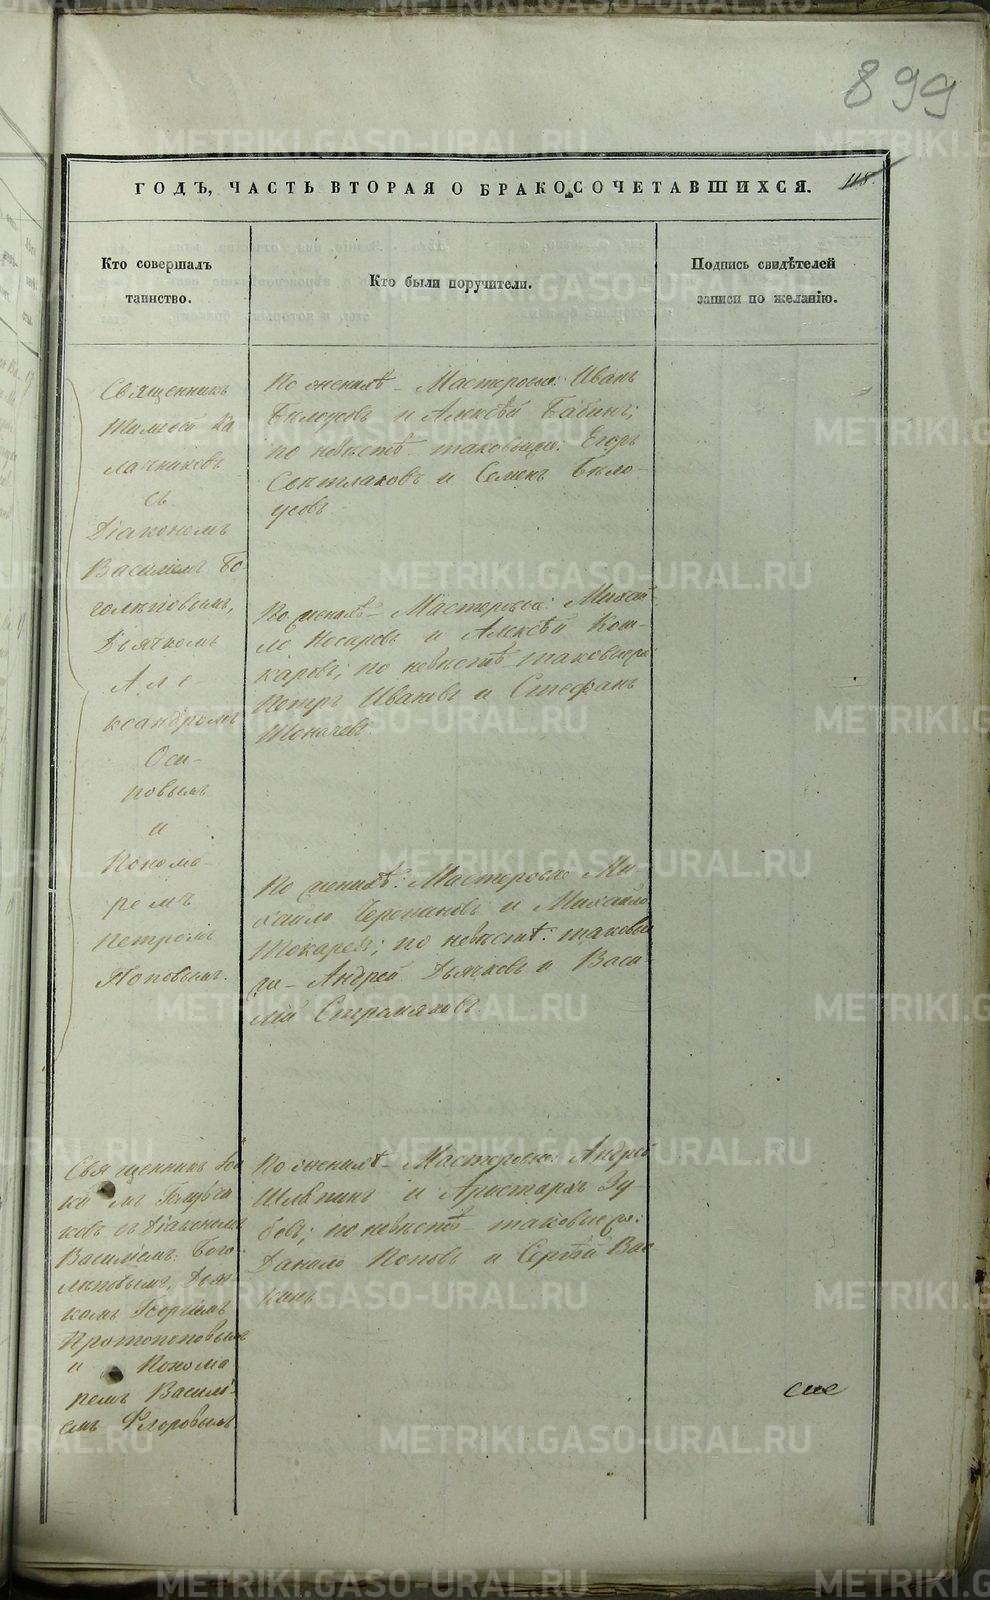 899
ГОДЪ, ЧАСТЬ ВТОРАЯ О БРАКОСОЧЕТАВШИХСЯ.
118.
Кто совершалъ
таинство.
Кто были поручители.
Подпись свидѣтелей
записи по желанію.
Священникъ
Тимофей Ка
лачниковъ
съ
Діакономъ
Василіемъ Бо-
голѣповымъ,
Дьячкомъ
Але-
ксандромъ
Оси-
повымъ
и
Понома-
ремъ
Петромъ
Поповымъ.
По женихѣ - Мастеровые: Иванъ
Бѣлоусовъ и Алексѣй Бабинъ;
по невѣстѣ - таковые же: Егоръ
Свѣтлаковъ и Семенъ Бѣло-
усовъ
По женихѣ - Мастеровые: Михай-
ло Носаревъ и Алексѣй Кош-
каровъ; по невѣстѣ таковые же
Петръ Ивановъ и Стефанъ
Толмачевъ
По женихѣ: Мастеровые Ми-
хаило Черепановъ и Михайло
Токаревъ; по невѣстѣ: таковые
же - Андрей Дьячковъ и Васи-
лій Стремяковъ.
Священникъ
съ Діакономъ
Василіемъ Бого-
лѣповымъ, Дьяч-
комъ Георгіемъ
Протопоповымъ
и Понома
ремъ Василі-
емъ Флоровымъ
По женихѣ - Мастеровые: Андрей
Шляпинъ и Аристархъ Зу-
бовъ; по невѣстѣ - таковые же:
Данило Поповъ и Сергѣй Вас
кинъ
METRIKI.GASO-URAL.RU